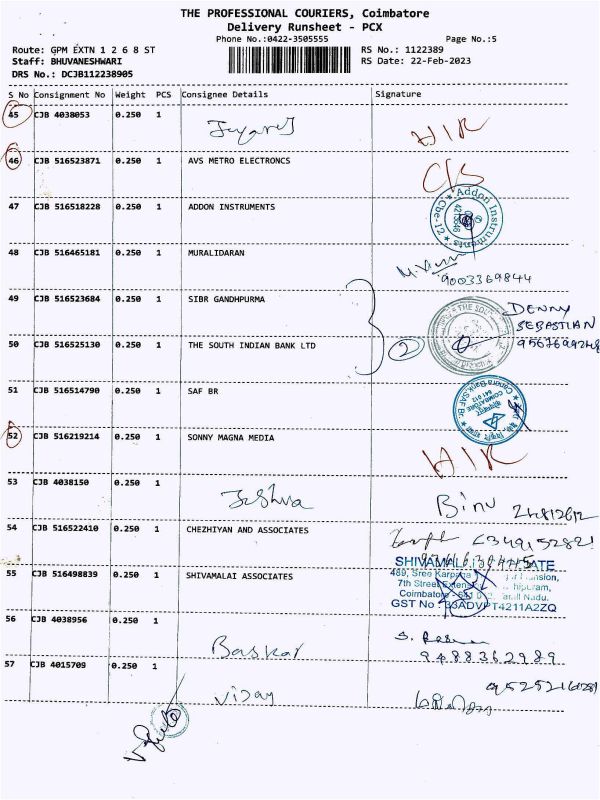 THE PROFESSIONAL COURIERS, Coimbatore
Delivery Runsheet - PCX
Phone No.:0422-3505555 Page No.:5
Route: GPM EXTN 1 2 6 8 ST RS No.: 1122389
Staff: BHUVANESHWARI RS Date: 22-Feb-2023
DRS No.: DCJB112238905
S No Consignment No Weight PCS Consignee Details Signature
45 CJB 4038053 0.250 1
H/R
46 CJB 516523871 0.250 1 AVS METRO ELECTRONCS
47 CJB 516518228 0.250 1 ADDON INSTRUMENTS
Addon Instruments Cbe-12
48 CJB 516465181 0.250 1 MURALIDARAN
9003369844
49 CJB 516523684 0.250 1 SIBR GANDHPURMA
DENNY
SEBASTIAN
50 CJB 516525130 0.250 1 THE SOUTH INDIAN BANK LTD 2
51 CJB 516514790 0.250 1 SAF BR
Canara Bank, SAF Br. COIMBATORE 641 012
52 CJB 516219214 0.250 1 SONNY MAGNA MEDIA
H/R
53 CJB 4038150 0.250 1
Binu
54 CJB 516522410 0.250 1 CHEZHIYAN AND ASSOCIATES
55 CJB 516498839 0.250 1 SHIVAMALAI ASSOCIATES
7th Street
Coimbatore
GST No
56 CJB 4038956 0.250 1
Baskar 9488362989
57 CJB 4015709 0.250 1
Vijay